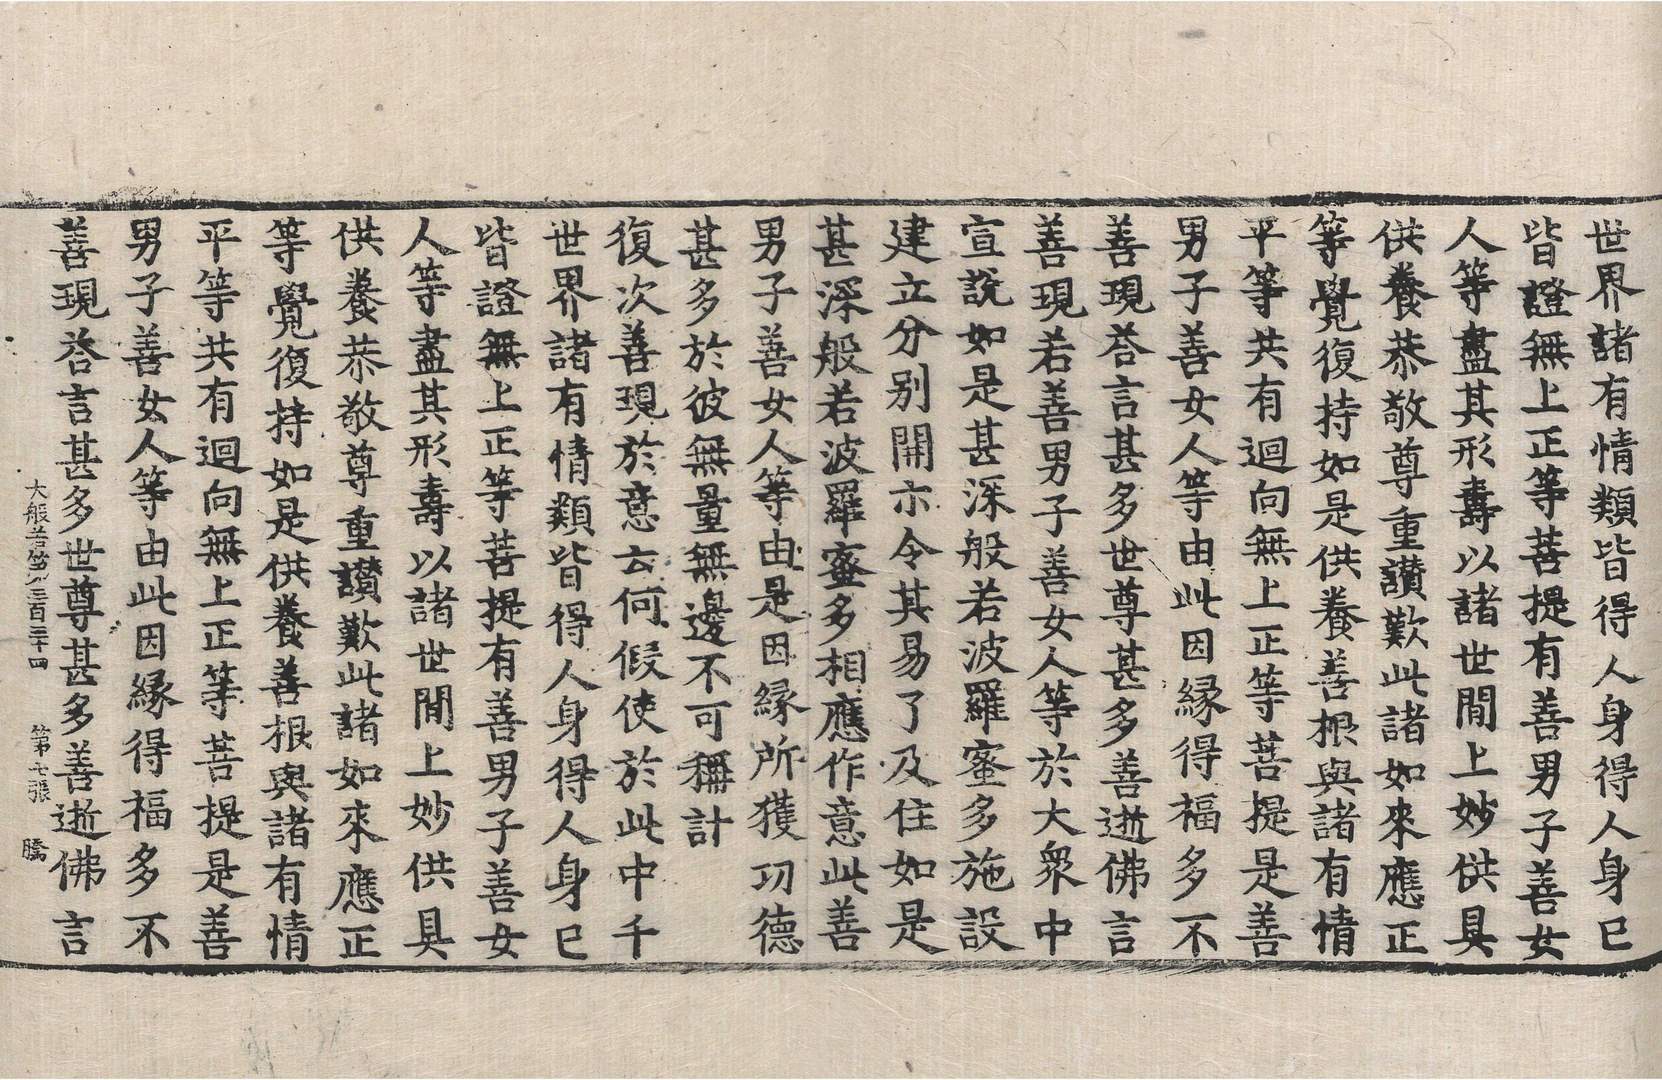 世界諸有情類皆得人身得人身已
皆證無上正等菩提有善男子善女
人等盡其形壽以諸世間上妙供具
供養恭敬尊重讚歎此諸如來應正
等覺復持如是供養善根與諸有情
平等共有迴向無上正等菩提是善
男子善女人等由此因緣得福多不
善現荅言甚多世尊甚多善逝佛言
善現若善男子善女人等於大衆中
宣說如是甚深般若波羅蜜多施設
建立分別開示令其易了及住如是
甚深般若波羅蜜多相應作意此善
男子善女人等由是因緣所獲功德
甚多於彼無量無邊不可稱計
復次善現於意云何假使於此中千
世界諸有情類皆得人身得人身已
皆證無上正等菩提有善男子善女
人等盡其形壽以諸世間上妙供具
供養恭敬尊重讚歎此諸如來應正
等覺復持如是供養善根與諸有情
平等共有迴向無上正等菩提是善
男子善女人等由此因緣得福多不
善現荅言甚多世尊甚多善逝佛言
大般若第三百三十四 第七張 騰